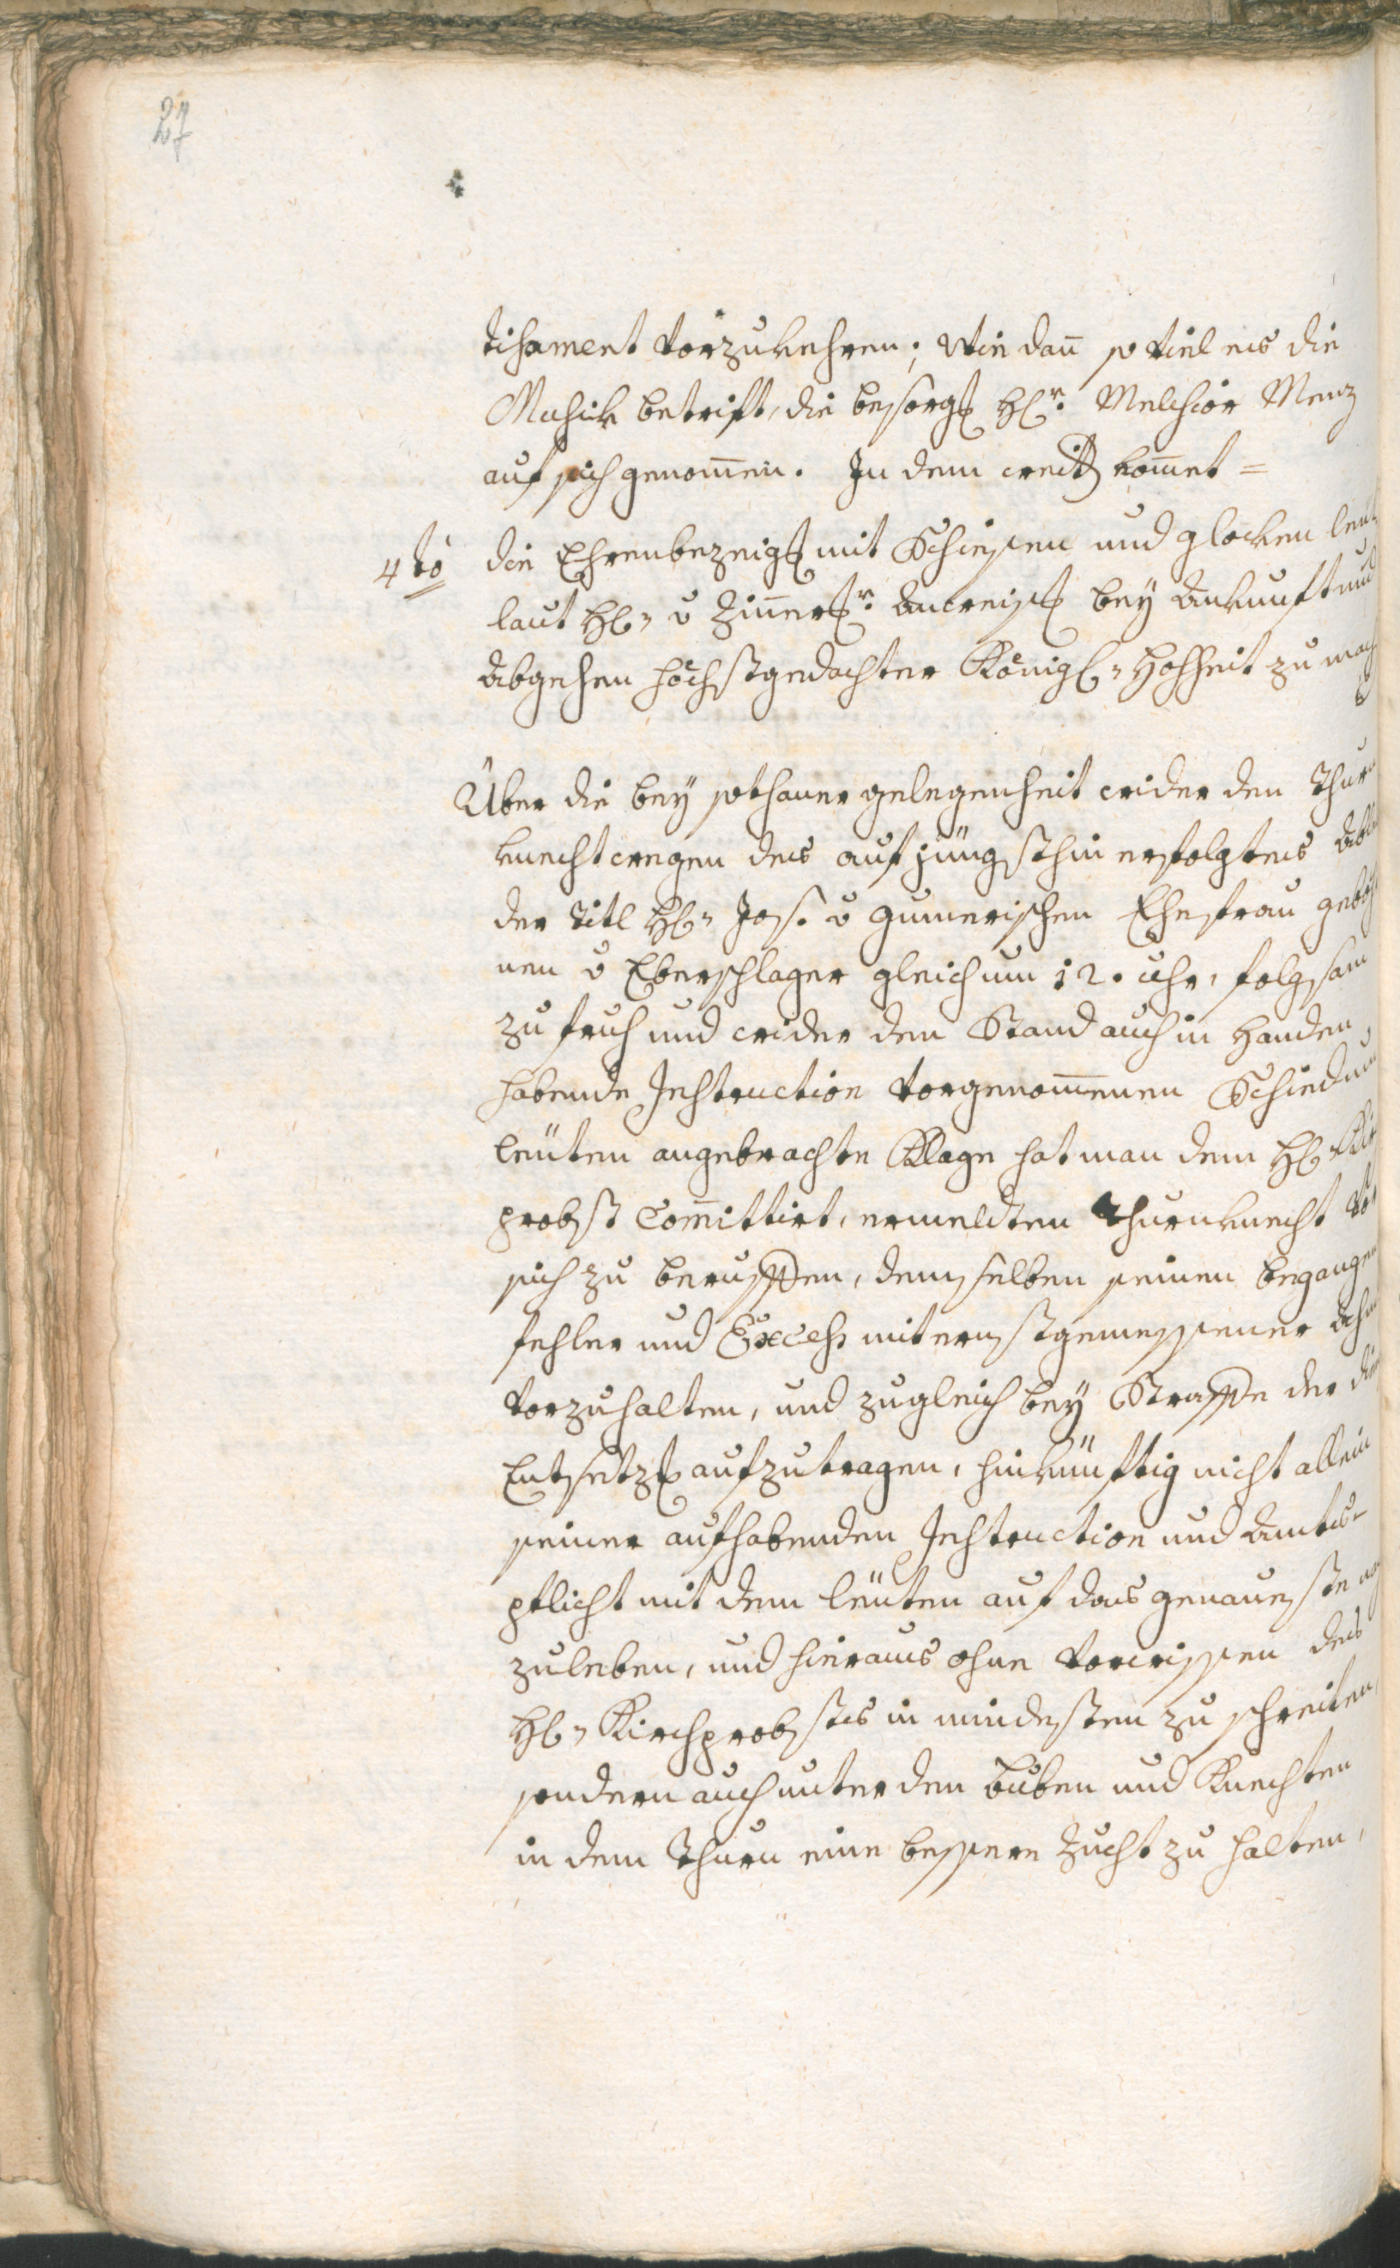 27
tisament vorzukehren; wie dan̄ so viel es die
Music betrift, die besorg[ung] H[er]r. Melchior Menz
auf sich genom̄en. In dem weith kom̄et =
4to die Ehrenbezeig[ung] mit Schiessen und glocken leu
laut H[errn] v Zinner[...]r. anweis[ung] bey ankunft und
abgehen höchstgedachter Königl[.] Hohheit zu mach
Über die bey sothaner gelegenheit wider den Thurn
knecht wegen des auf jüngsthin erfolgtes
der Titl H[errn] Jos. v Gumerischen Ehefrau geboh
nen v Eberschlager gleich um 12. uhr, folgsam
zu fruh und wider den Stand auch in Handen
habende Instruction vorgenom̄enen Schiedun
leüten angebrachte Klage hat man dem H[errn] Kir
probst Com̄ittirt, ermeldten Thurnknecht vor
sich zu beruffen, demselben seinen begangen
fehler und Excess mit ernstgemessener
vorzuhalten, und zugleich bey Straffe der die
Entsetz[ung] aufzutragen, hinkünftig nicht allein
seiner aufhabenden Instruction und Amts-
pflicht mit dem leüten auf das genaueste
zuleben, und hieraus ohne vorwissen des
H[errn] Kirchprobstes in mindesten zu schreiten,
sondern auch unter den Buben und Knechten
in dem Thurn eine bessere Zucht zu halten,